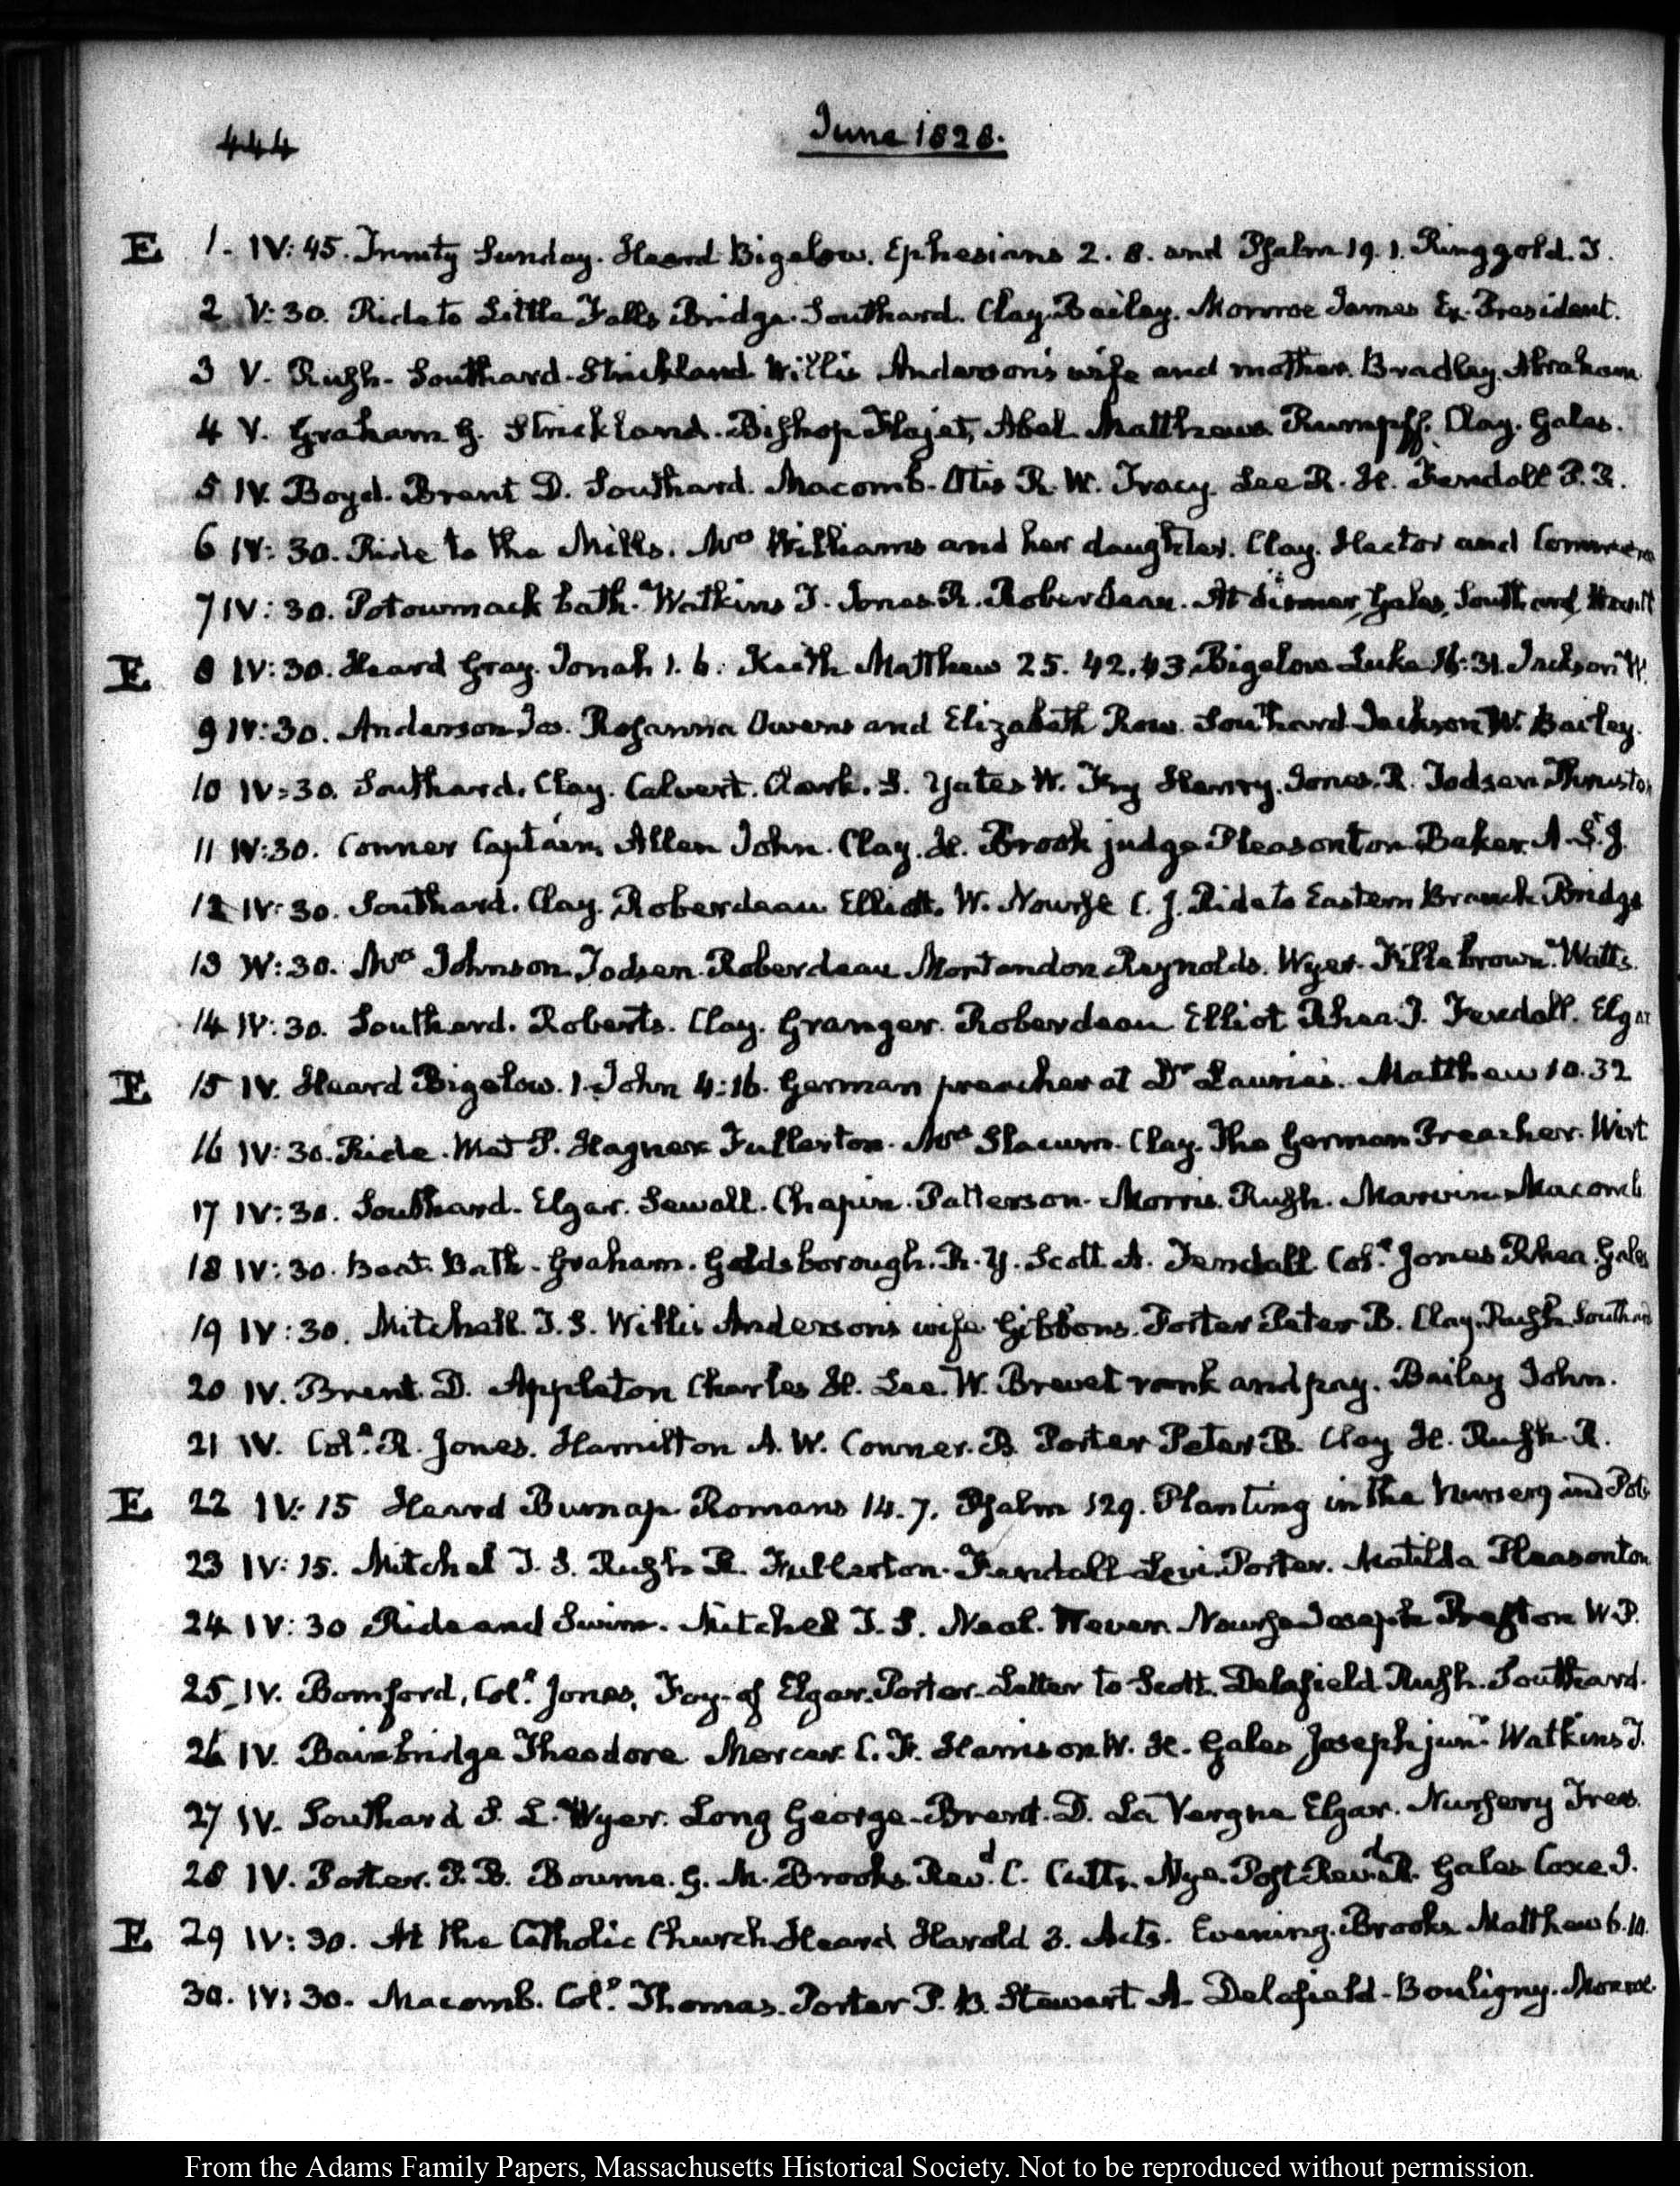 444
June 1828.
E 1. IV:45. Trinity Sunday. Heard Bigelow. Ephesians 2. 8. and Psalm 19. 1. Ringgold. T.
2 V:30. Ride to Little Falls Bridge. Southard. Clay. Bailey. Monroe James Ex-President.
3 V. Rush. Southard. Strickland Willis Anderson's wife and mother. Bradley. Abraham
4 V. Graham G. Strickland. Bishop Abel Matthews Rumpff. Clay. Gales.
5 IV. Boyd. Brent D. Southard. Macomb. Otis R. W. Tracy. Lee R. H. Fendall P. R.
6 IV:30. Ride to the Mills. Mrs Williams and her daughter. Clay. Hector and
7 IV:30. Potowmack bath. Watkins T. Jones. R. Roberdeau. At dinner, Gales, Southard,
E 8 IV:30. Heard Gray. Jonah 1. 6. Keith Matthew 25. 42.43 Bigelow Luke 16:31. Jackson W.
9 IV:30. Anderson Jas. Rosanna Owens and Elizabeth Row. Southard Jackson W. Bailey.
10 IV:30. Southard. Clay. Calvert. Clark. S. Yates W. Henry. Jones. R. Todsen Thruston
11 IV:30. Conner Captain, Allen John. Clay. H. Brook judge Pleasonton Baker. A. S. J.
12 IV:30. Southard. Clay. Roberdeau Elliott. W. Nourse C. J. Ride to Eastern Branch Bridge
13 IV:30. Mrs Johnson. Todsen. Roberdeau Montandon Reynolds. Wyer. Killebrown. Watts.
14 IV:30. Southard. Roberts. Clay. Granger. Roberdeau Elliot Rhea J. Fendall. Elgar
E 15 IV. Heard Bigelow. 1. John 4:16. German preacher at Dr Laurie's. Matthew 10.32
16 IV:30. Ride. Met P. Hagner Fullerton. Mrs Slacum. Clay. The German Preacher. Wirt
17 IV:30. Southard. Elgar. Sewall. Chapin. Patterson. Morris. Rush. Marvin. Macomb
18 IV:30. Boat. Bath. Graham. Goldsborough. R. Y. Scott A. Fendall Coll. Jones Rhea. Gales
19 IV:30. Mitchell. T. S. Willis Anderson's wife Gibbons. Porter Peter B. Clay. Rush. Southard
20 IV. Brent. D. Appleton Charles H. Lee. W. Brevet rank and pay. Bailey John.
21 IV. Coll. R. Jones. Hamilton A. W. Conner. B. Porter Peter B. Clay H. Rush. R.
E 22 IV:15 Heard Burnap. Romans 14. 7. Psalm 129. Planting in the Nursery and Pots
23 IV:15. Mitchel T. S. Rush R. Fullerton. Fendall Levi. Porter. Matilda Pleasonton
24 IV:30 Ride and Swim. Mitchel T. S. Neal. Weaver. Nourse Joseph Preston W. P.
25. IV. Bomford, Coll. Jones, Foy. Elgar. Porter. Letter to Scott. Delafield Rush. Southard.
26 IV. Bainbridge Theodore Mercer. C. F. Harrison W. H. Gales Joseph junr. Watkins T.
27 IV. Southard S. L. Wyer. Long George. Brent. D. La Vergne Elgar. Nursery Trees.
28 IV. Porter. P. B. Bourne. G. M. Brooks. Revd. C. Cutts, Nye. Post Revd. R. Gales Coxe. T.
E 29 IV:30. At the Catholic Church. Heard Harold 3. Acts. Evening. Brooks Matthew 6.10.
30. IV:30. Macomb. Coll. Thomas. Porter P. B. Stewart A. Delafield. Bouligny. Monroe.
From the Adams Family Papers, Massachusetts Historical Society. Not to be reproduced without permission.